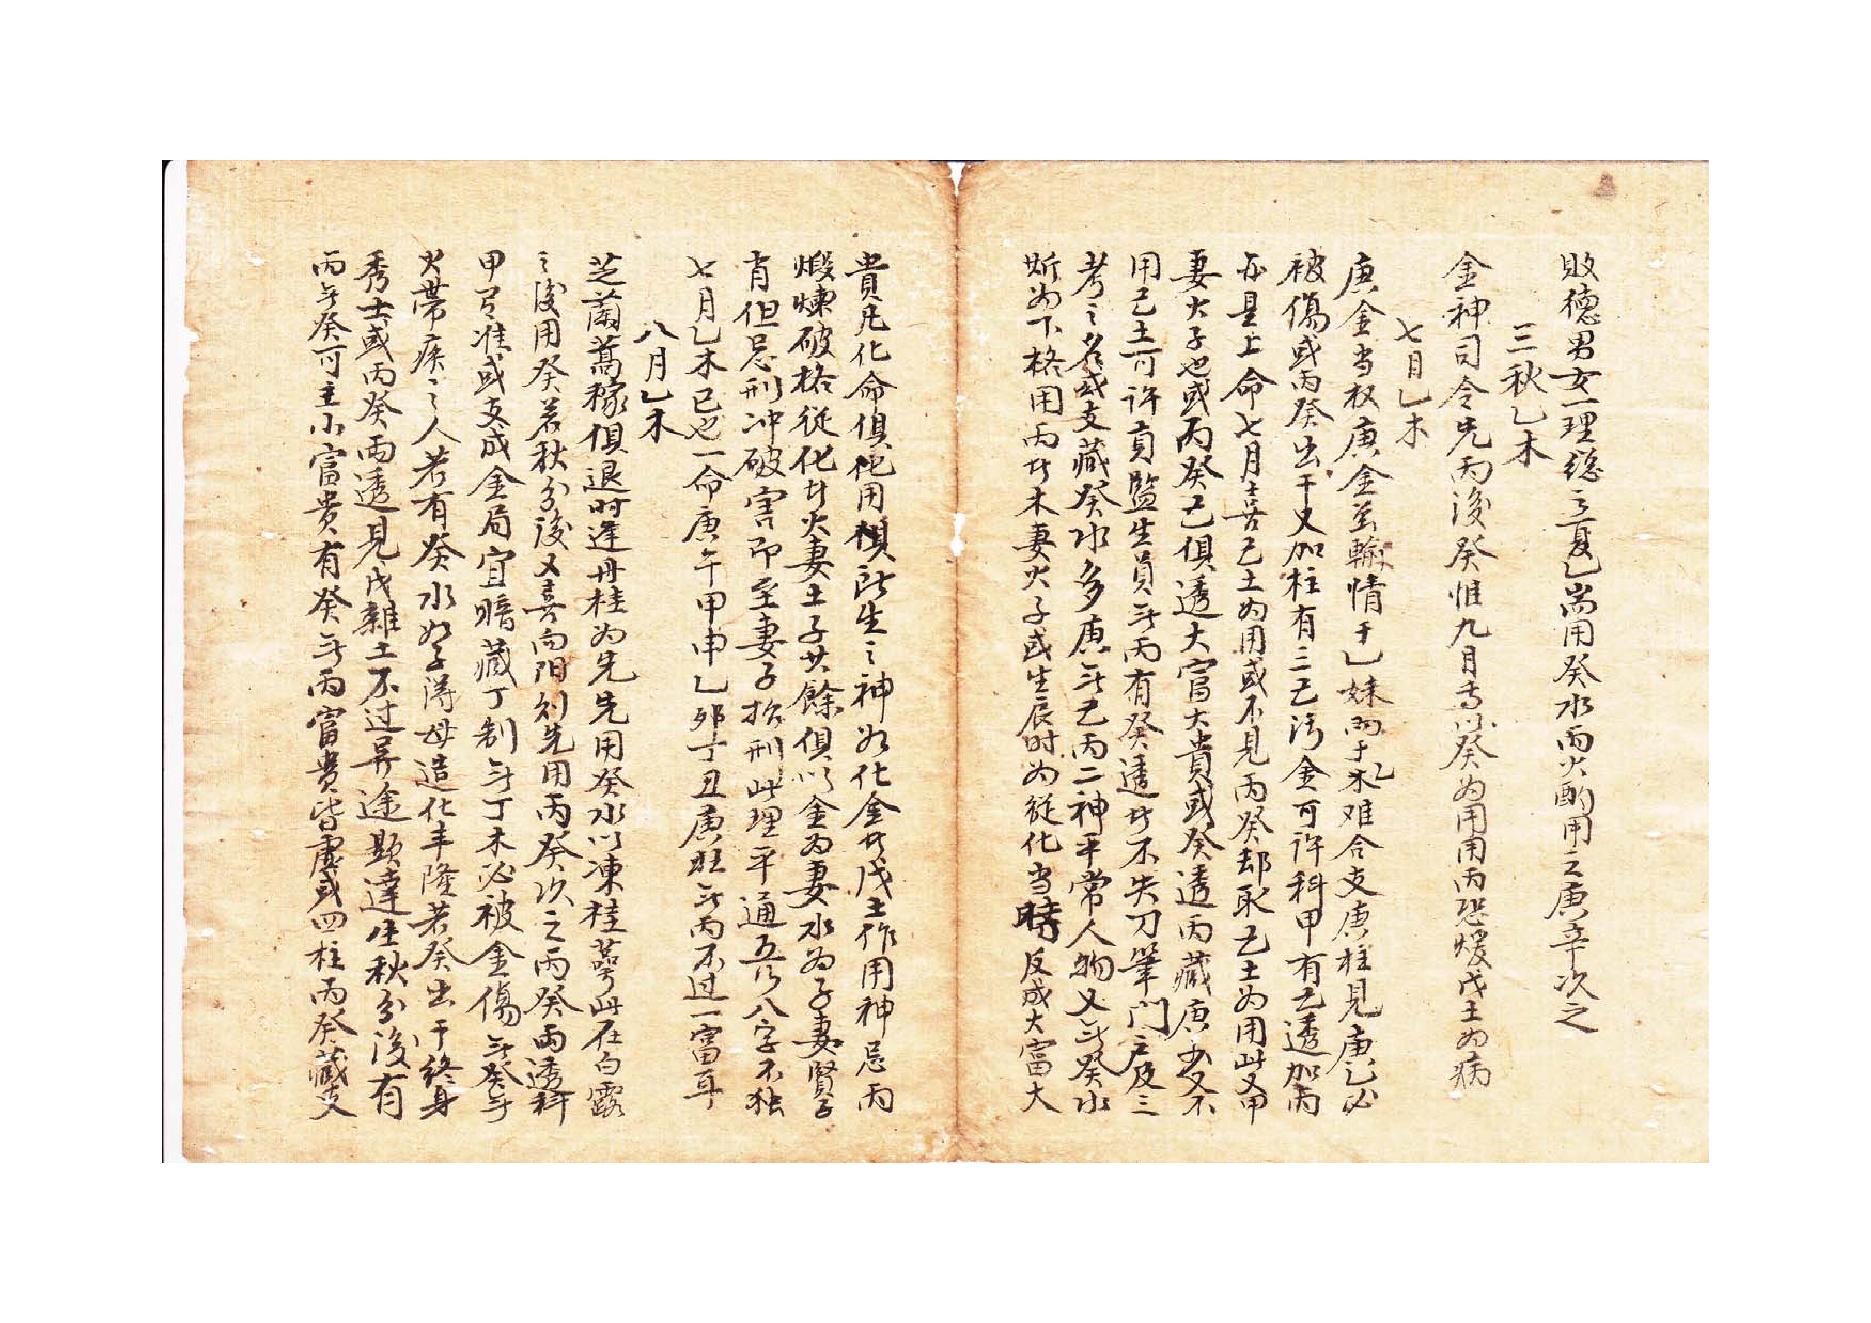 敗德男女一理總之夏乙當用癸水丙火酌用之庚辛次之
三秋乙木
金神司令先丙後癸惟九月專以癸为用用丙恐煖戊土为病
七月乙木
庚金当权庚金虽輸情于乙妹而于木乙难合支庚柱見庚乙必
被傷或丙癸出干又加柱有二己污金可許科甲有己透加丙
亦是上命七月喜己土为用或不見丙癸却取己土为用此又甲
妻火子也或丙癸己俱透大富大貴或癸透丙藏庚少又不
用己土可許貢監生員无丙有癸透者不失刀筆门户及三
考之名或支藏癸水多庚无己丙二神平常人物又无癸水
斯为下格用丙者木妻火子或生辰时为從化当時反成大富大
貴凡化命俱他用損所生之神如化金者戊土作用神忌丙
煅煉破格從化者火妻土子其餘俱以金为妻水为子妻賢子
肖但忌刑冲破害即至妻子招刑此理平通五行八字不独
七月乙木已也一命庚午甲申乙卯丁丑庚旺无丙不过一富耳
八月乙木
芝蘭蒿稼俱退时逢丹桂为先先用癸水以凍桂萼此在白露
之後用癸若秋分後又喜向阳則先用丙癸次之丙癸兩透科
甲有准或支成金局宜暗藏丁制无丁木必被金傷无癸无
火帶疾之人若有癸水如子得母造化丰隆若癸出干終身
秀士或丙癸兩透見戊雜土不过异途顯達生秋分後有
丙无癸可主小富貴有癸无丙富貴皆虛或四柱丙癸藏支